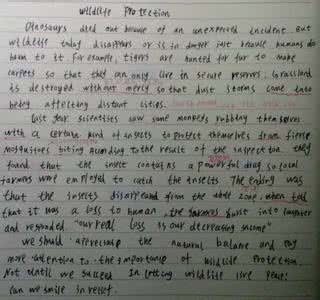 wildlife Protection
Dinosaurs died out because of an unexpected incident. But
wildlife today disappears or is in danger just because humans do
harm to it. For example, tigers are hunted for fur to make
carpets so that they can only live in secure reserves. Grassland
is destroyed without mercy so that dust storms come into
being affecting distant cities.
Last year scientists saw some monkeys rubbing themselves
with a certain kind of insects to protect themselves from fierce
mosquitoes' biting. According to the result of the inspection they
found that the insect contains a powerful drug so local
farmers were employed to catch the insects. The ending was
that the insects disappeared from the whole zone. when told
that it was a loss to human, the farmers burst into laughter
and responded "our real loss is our decreasing income"
we should appreciate the natural balance and pay
more attention to the importance of wildlife protection.
Not until we succeed in letting wildlife live peace
can we smile in relief.